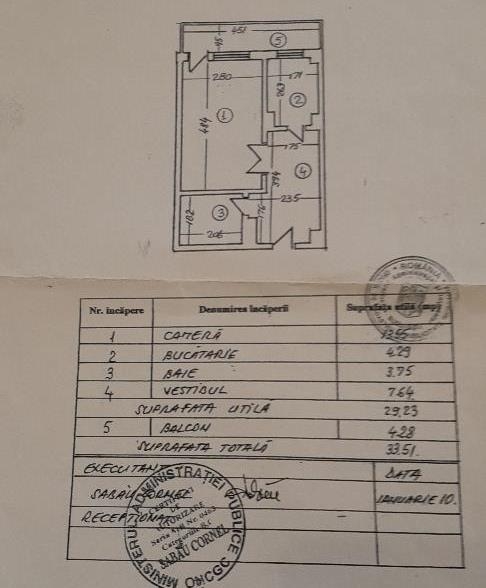 451
95
5
280
171
263
2
1
484
175
4
394
235
3
182
206
176
ROMÂNIA
Nr. încăpere Denumirea încăperii Suprafaţa utilă (mp)
1 CAMERĂ 13.55
2 BUCĂTARIE 4.29
3 BAIE 3.75
4 VESTIBUL 7.64
SUPRAFAŢA UTILĂ 29,23
5 BALCON 4.28
SUPRAFAŢA TOTALĂ 33.51.
EXECUTANT DATA
SABĂU CORNEL IANUARIE 10.
RECEPŢIONAT
MINISTERUL ADMINISTRAŢIEI PUBLICE
OMCGC
CERTIFICAT
DE
AUTORIZARE
Categoriile B,C
SABĂU CORNEL